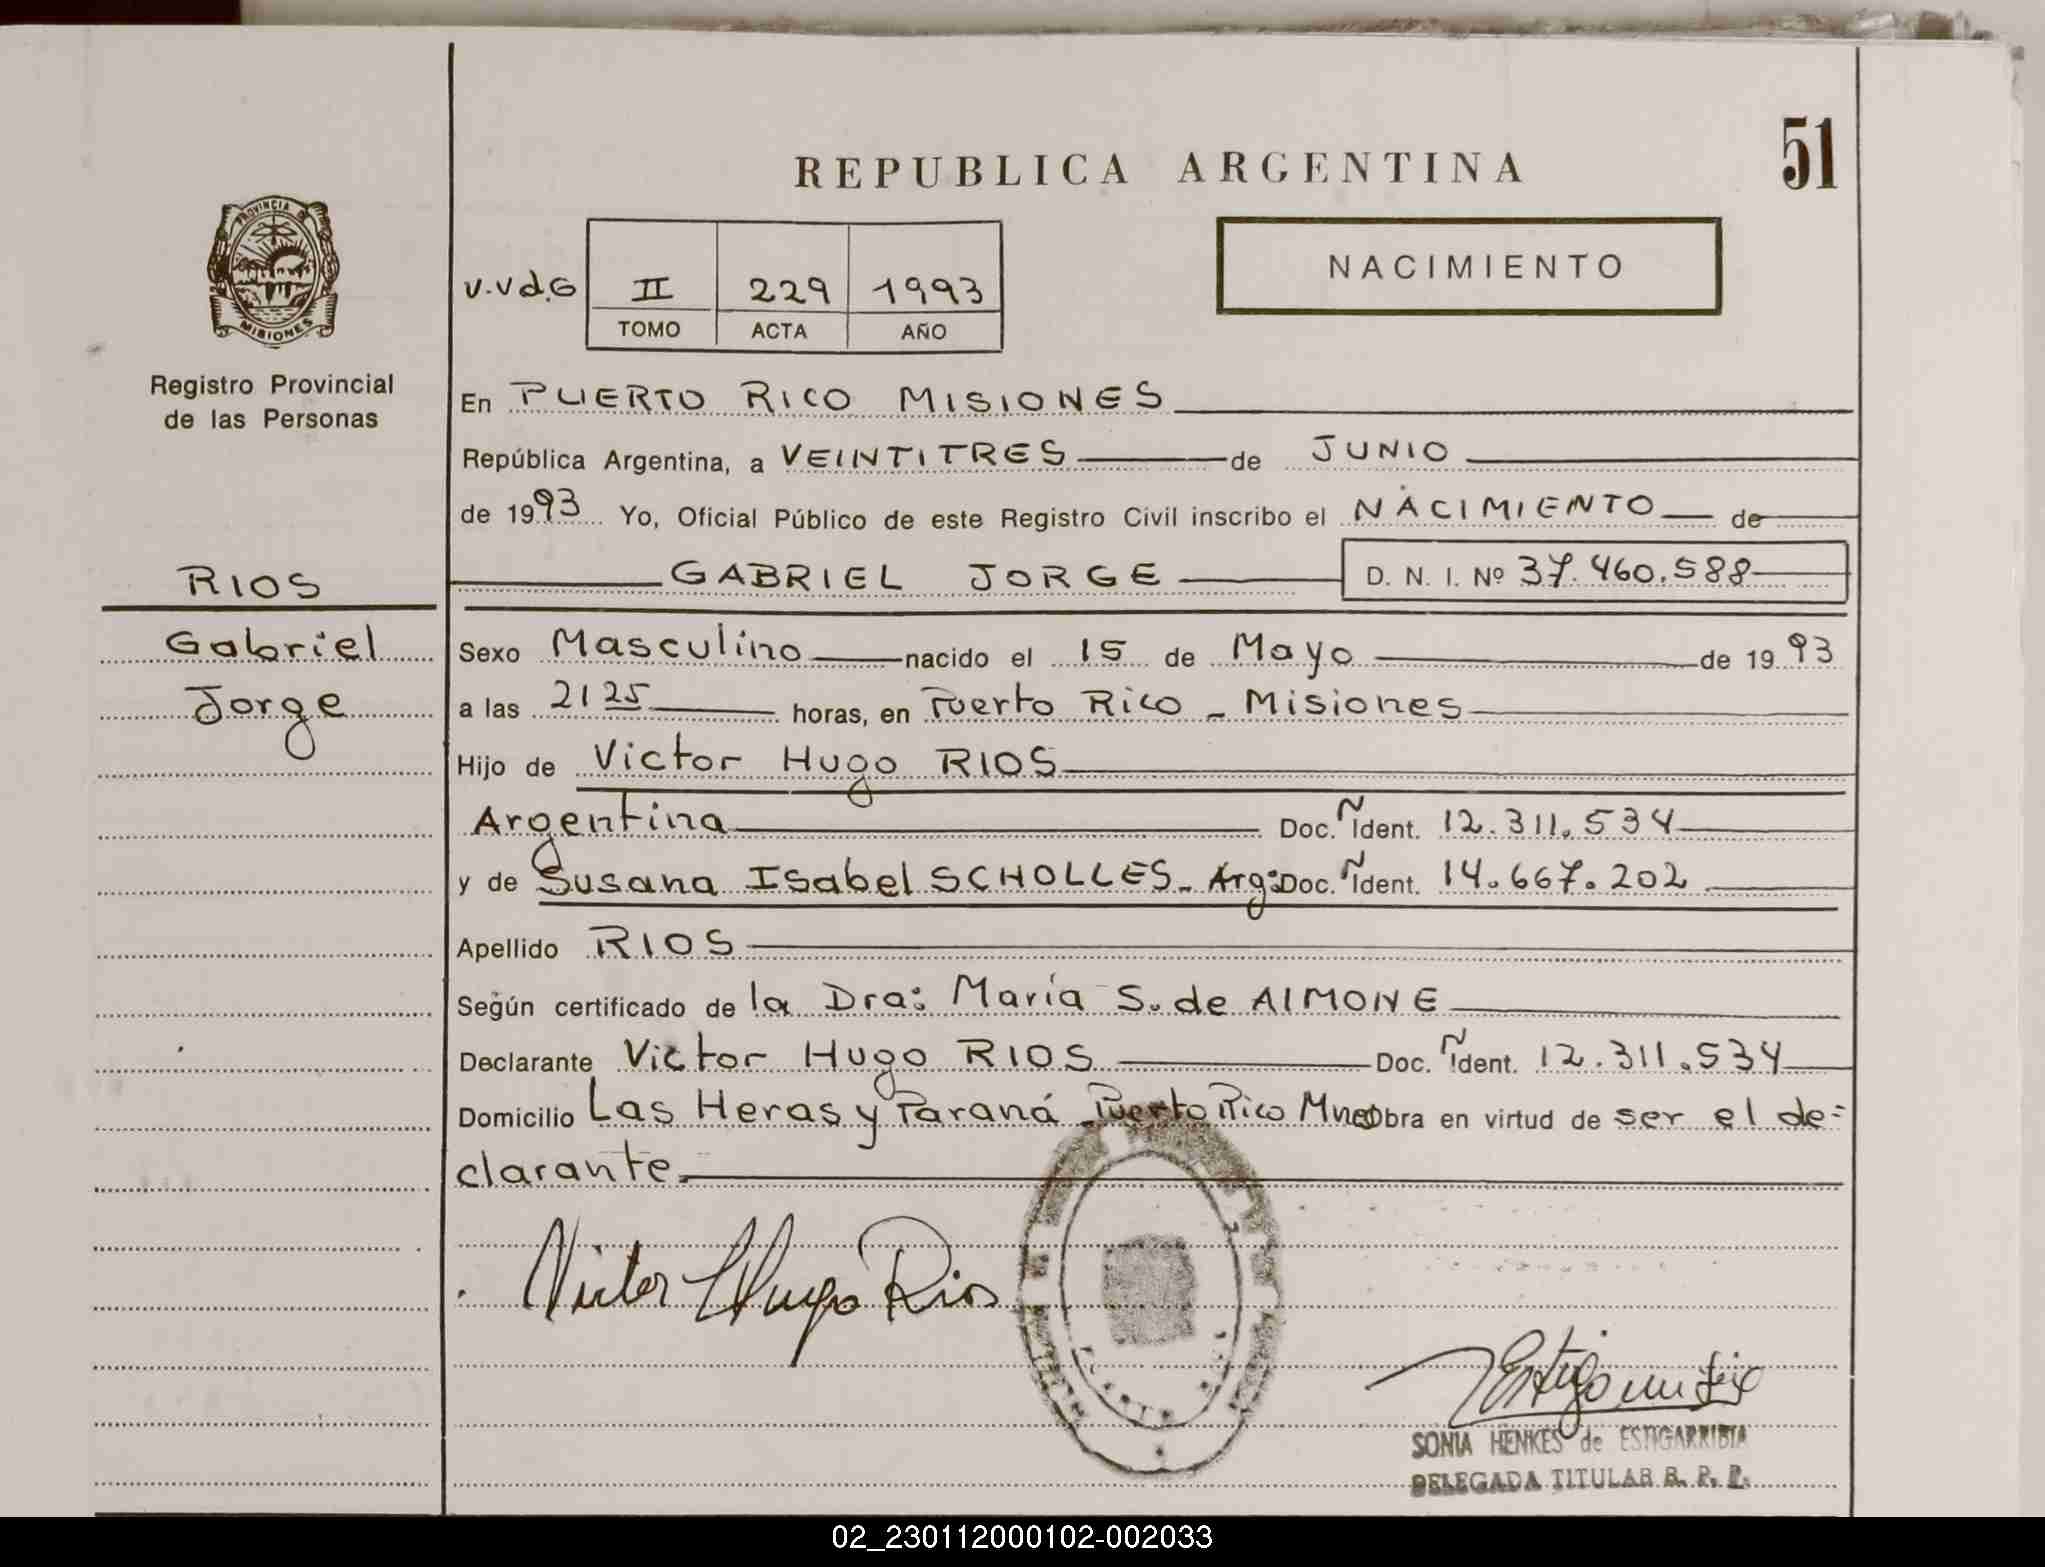 51
REPUBLICA ARGENTINA
PROVINCIA DE
MISIONES
Registro Provincial
de las Personas
NACIMIENTO
V.Vd.G II 229 1993
TOMO ACTA AÑO
En PUERTO RICO MISIONES
República Argentina, a VEINTITRES de JUNIO
de 1993 Yo, Oficial Público de este Registro Civil inscribo el NACIMIENTO de
RIOS
GABRIEL JORGE D. N. I. Nº 37.460.588
Gabriel
Sexo Masculino nacido el 15 de Mayo de 1993
Jorge
a las 21 25 horas, en Puerto Rico - Misiones
Hijo de Victor Hugo RIOS
Argentina Doc. Ident. 12.311.534
y de Susana Isabel SCHOLLES - Arg: Doc. Ident. 14.667.202
Apellido RIOS
Según certificado de la Dra: María S. de AIMONE
Declarante Victor Hugo RIOS Doc. Ident. 12.311.534
Domicilio Las Heras y Paraná - Puerto Rico Mnes Obra en virtud de ser el de=
clarante.
Victor Hugo Rios
SONIA HENKES de ESTIGARRIBIA
DELEGADA TITULAR R. P. P.
02_230112000102-002033